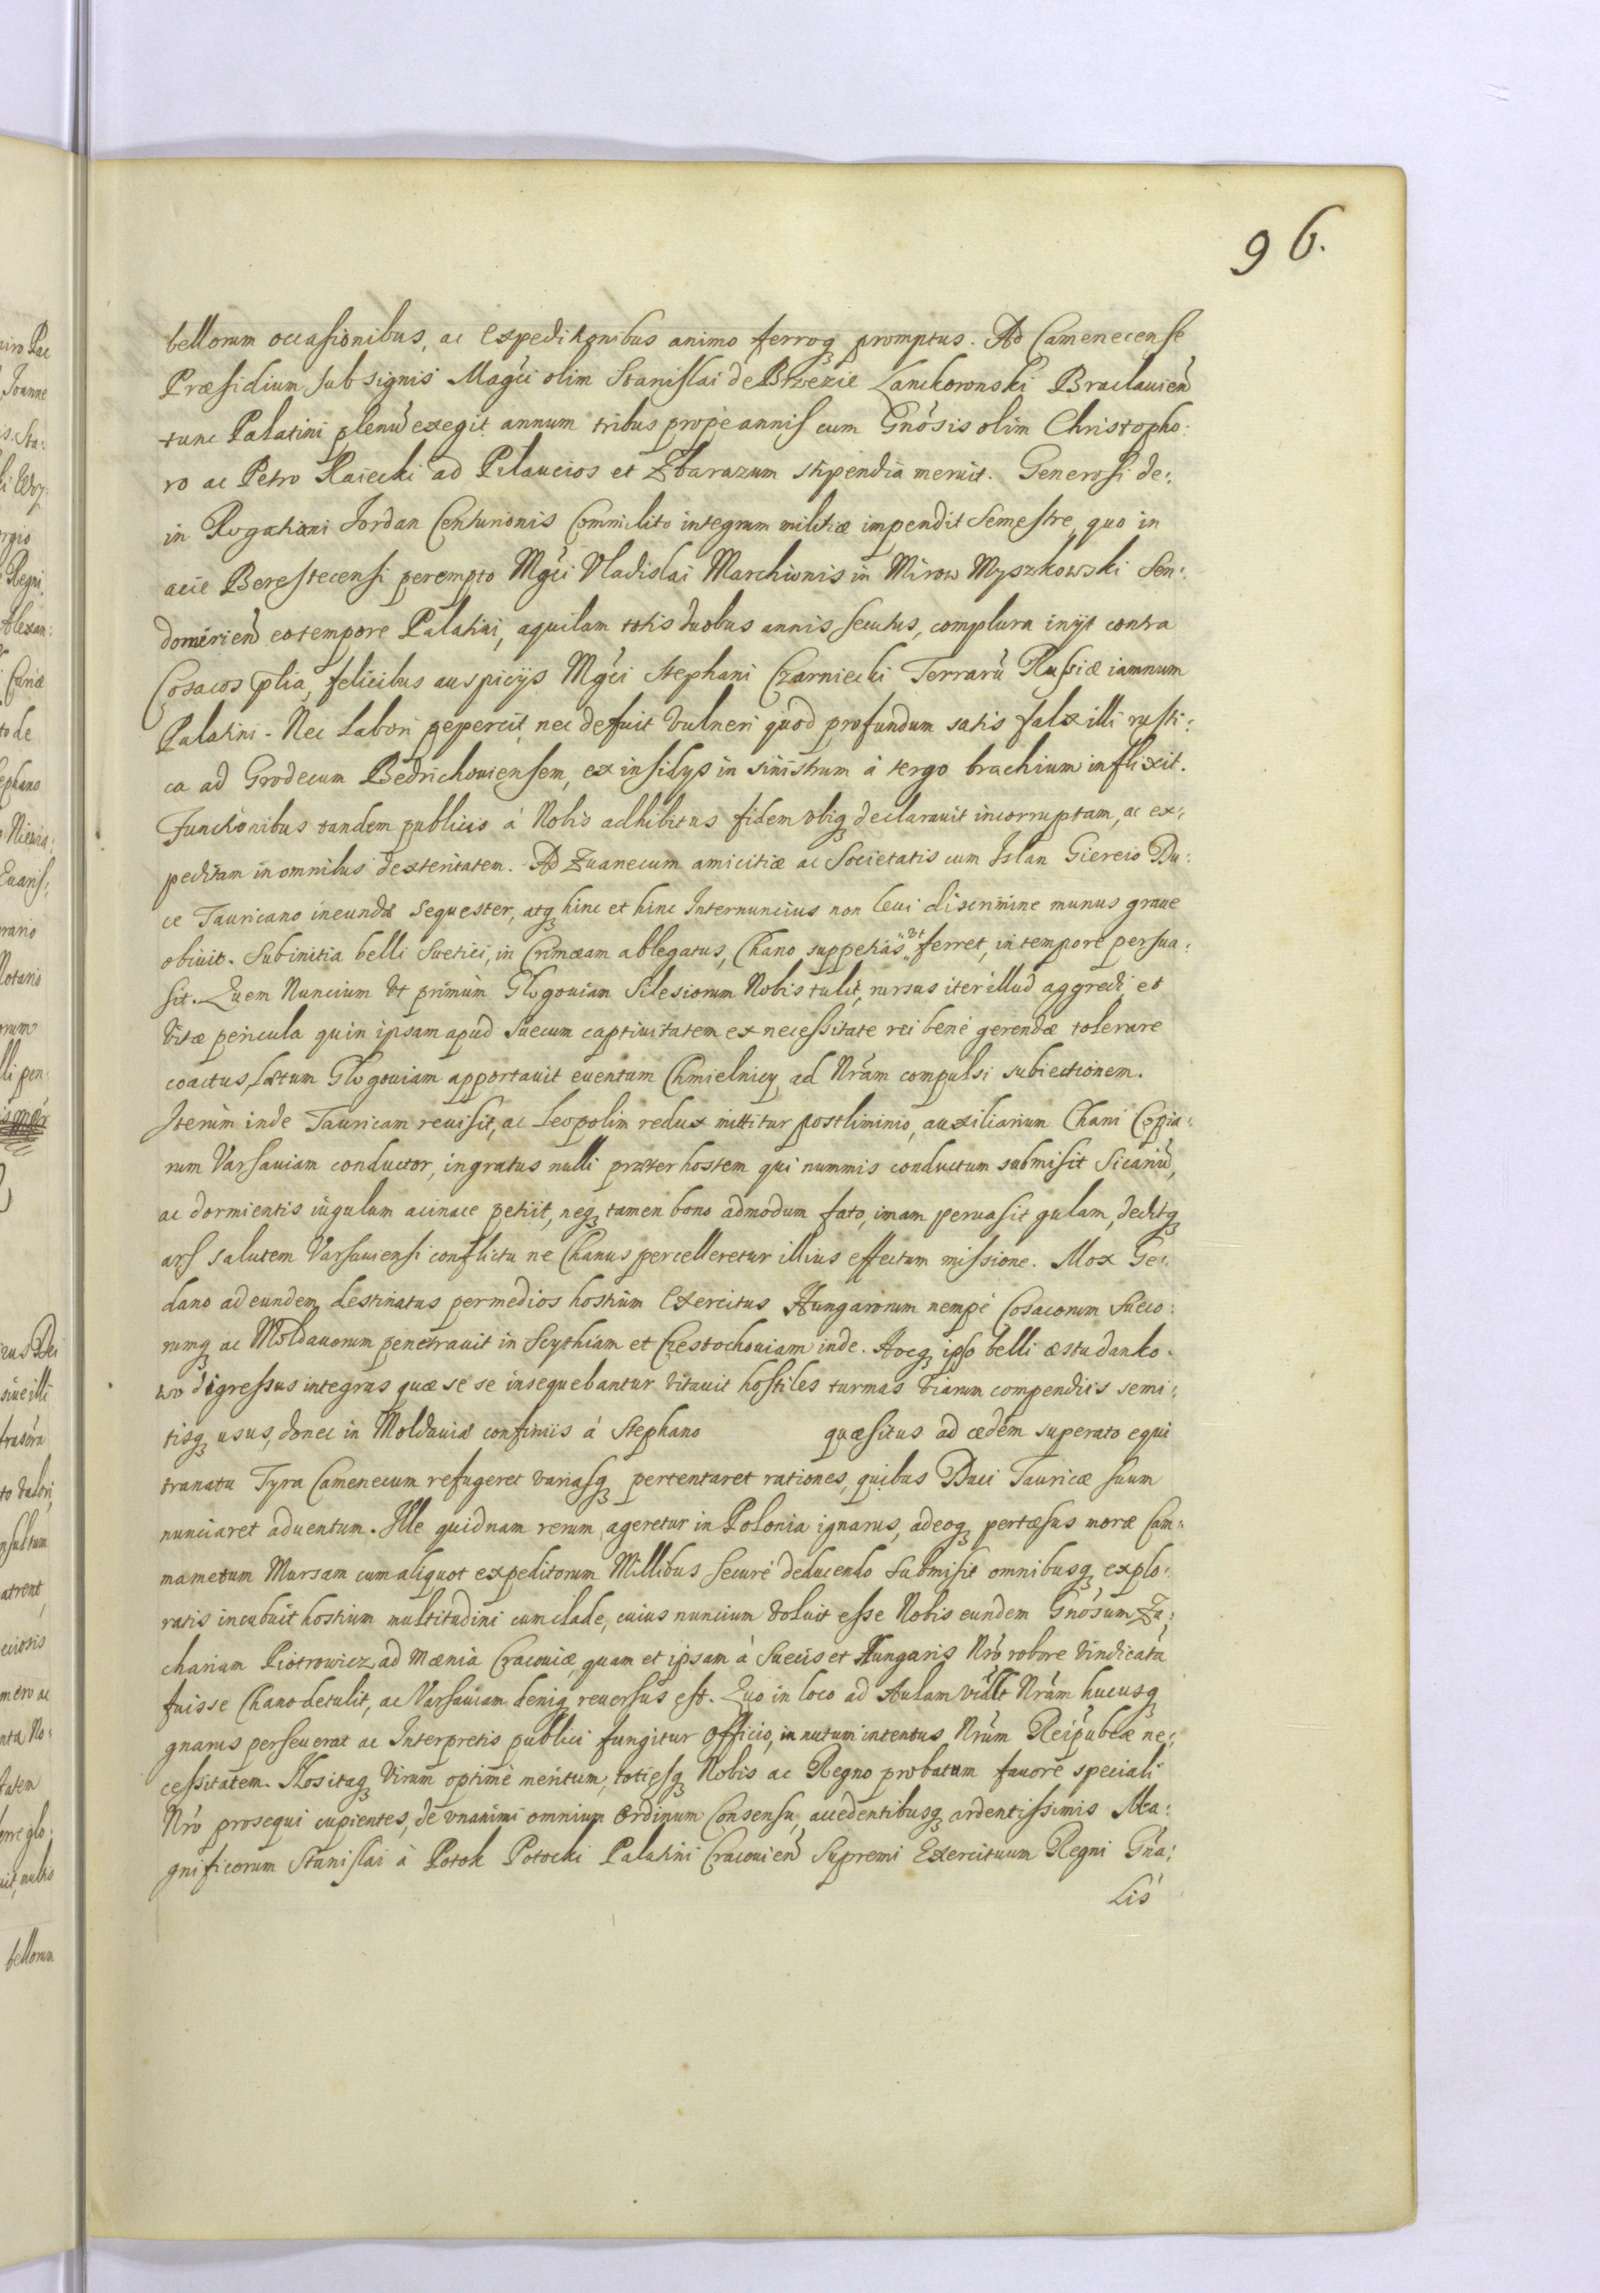 96.
bellorum occasionibus, ac Expeditionibus animo ferroq promptus. Ad Camenecense
Præsidium sub signis Magci olim Stanislai de Brzezie Lanckoronski Braclauien
tunc Palatini plenu exegit annum tribus prope annis cum Gnosis olim Christopho:
ro ac Petro Raiecki ad Pilaucios et Zbarazum stipendia meruit. Generosi de:
in Rogatiani Jordan Centurionis Commilito integrum militiæ impendit semestre, quo in
acie Berestecensi perempto Mgci Vladislai Marchionis in Mirow Myszkowski Sen:
domirien eo tempore Palatini, aquilam totis duobus annis secutus, complura inijt contra
Cosacos plia, felicibus auspicijs Mgci Stephani Czarniecki Terraru Russiæ iamnum
Palatini. Nec Labori pepercit, nec defuit vulneri quod profundum satis falx illi rusti:
ca ad Grodecum Bedrichouiensem, ex insidys in sinistrum à tergo brachium inflixit.
Functionibus tandem publicis à Nobis adhibitus fidem vbiq declarauit incorruptam, ac ex:
peditam in omnibus dexteritatem. Ad Zuanecum amicitiæ ac Societatis cum Islan Giereio Du:
ce Tauricano ineundæ Sequester, atq hinc et hinc Internuncius non leui discrimine munus graue
obiuit. Sub initia belli Suetici, in Crimæam ablegatus, Chano suppetias vt ferret, in tempore persua:
sit. Quem Nuncium vt primùm Glogouiam Silesiorum Nobis tulit, rursus iter illud aggredi, et
vitæ pericula quin ipsam apud Suecum captiuitatem ex necessitate rei benè gerendæ tolerare
coactus, Lætum Glogouiam apportauit euentum Chmielnicy ad Nram compulsi subiectionem.
Iterùm inde Tauricam reuisit, ac Leopolim redux mittitur postliminio, auxiliarium Chani Copia:
rum Varsauiam conductor, ingratus nulli præter hostem qui nummis conductum submisit Sicariu,
ac dormientis iugulum acinace petiit, neq tamen bono admodum fato, imam peruasit gulam, deditq
ars salutem Varsauiensi conflictu ne Chanus percelleretur illius effectum missione. Mox Ge:
dano ad eundem destinatus per medios hostium Exercitus Hungarorum nempè Cosacorum Sueco:
rumq ac Moldauorum penetrauit in Scythiam et Czestochouiam inde. Hocq ipso belli æstu danko:
wo digressus integras quæ se se insequebantur vitauit hostiles turmas viarum compendiis semi:
tisq usus, donec in Moldauiæ confiniis à Stephano quæsitus ad cædem superato equi
tranatu Tyra Camenecum refugeret variasq pertentaret rationes, quibus Duci Tauricæ suum
nunciaret aduentum. Ille quidnam rerum ageretur in Polonia ignarus, adeoq pertæsus moræ Cam:
mametum Mursam cum aliquot expeditorum Millibus securè deducendo submisit omnibusq explo:
ratis incubuit hostium multitudini cum clade, cuius nuncium voluit esse Nobis eundem Gnosum Za:
chariam Piotrowicz ad mænia Cracouiæ, quam et ipsam à Suecis et Hungaris Nro robore vindicata
fuisse Chano detulit, ac Varsauiam deniq reuersus est. Quo in loco ad Aulam Nram hucusq
gnarus perseuerat ac Interpretis publici fungitur officio, in nutum intentus Nrum Reipublcæ ne:
cessitatem. Nos itaq virum optimè meritum, totiesq Nobis ac Regno probatum fauore speciali
Nro prosequi cupientes, de vnanimi omnium Ordinum Consensu, accedentibusq ardentissimis Ma:
gnificorum Stanislai à Potok Potocki Palatini Cracouien Supremi Exercituum Regni Gna:
Lis